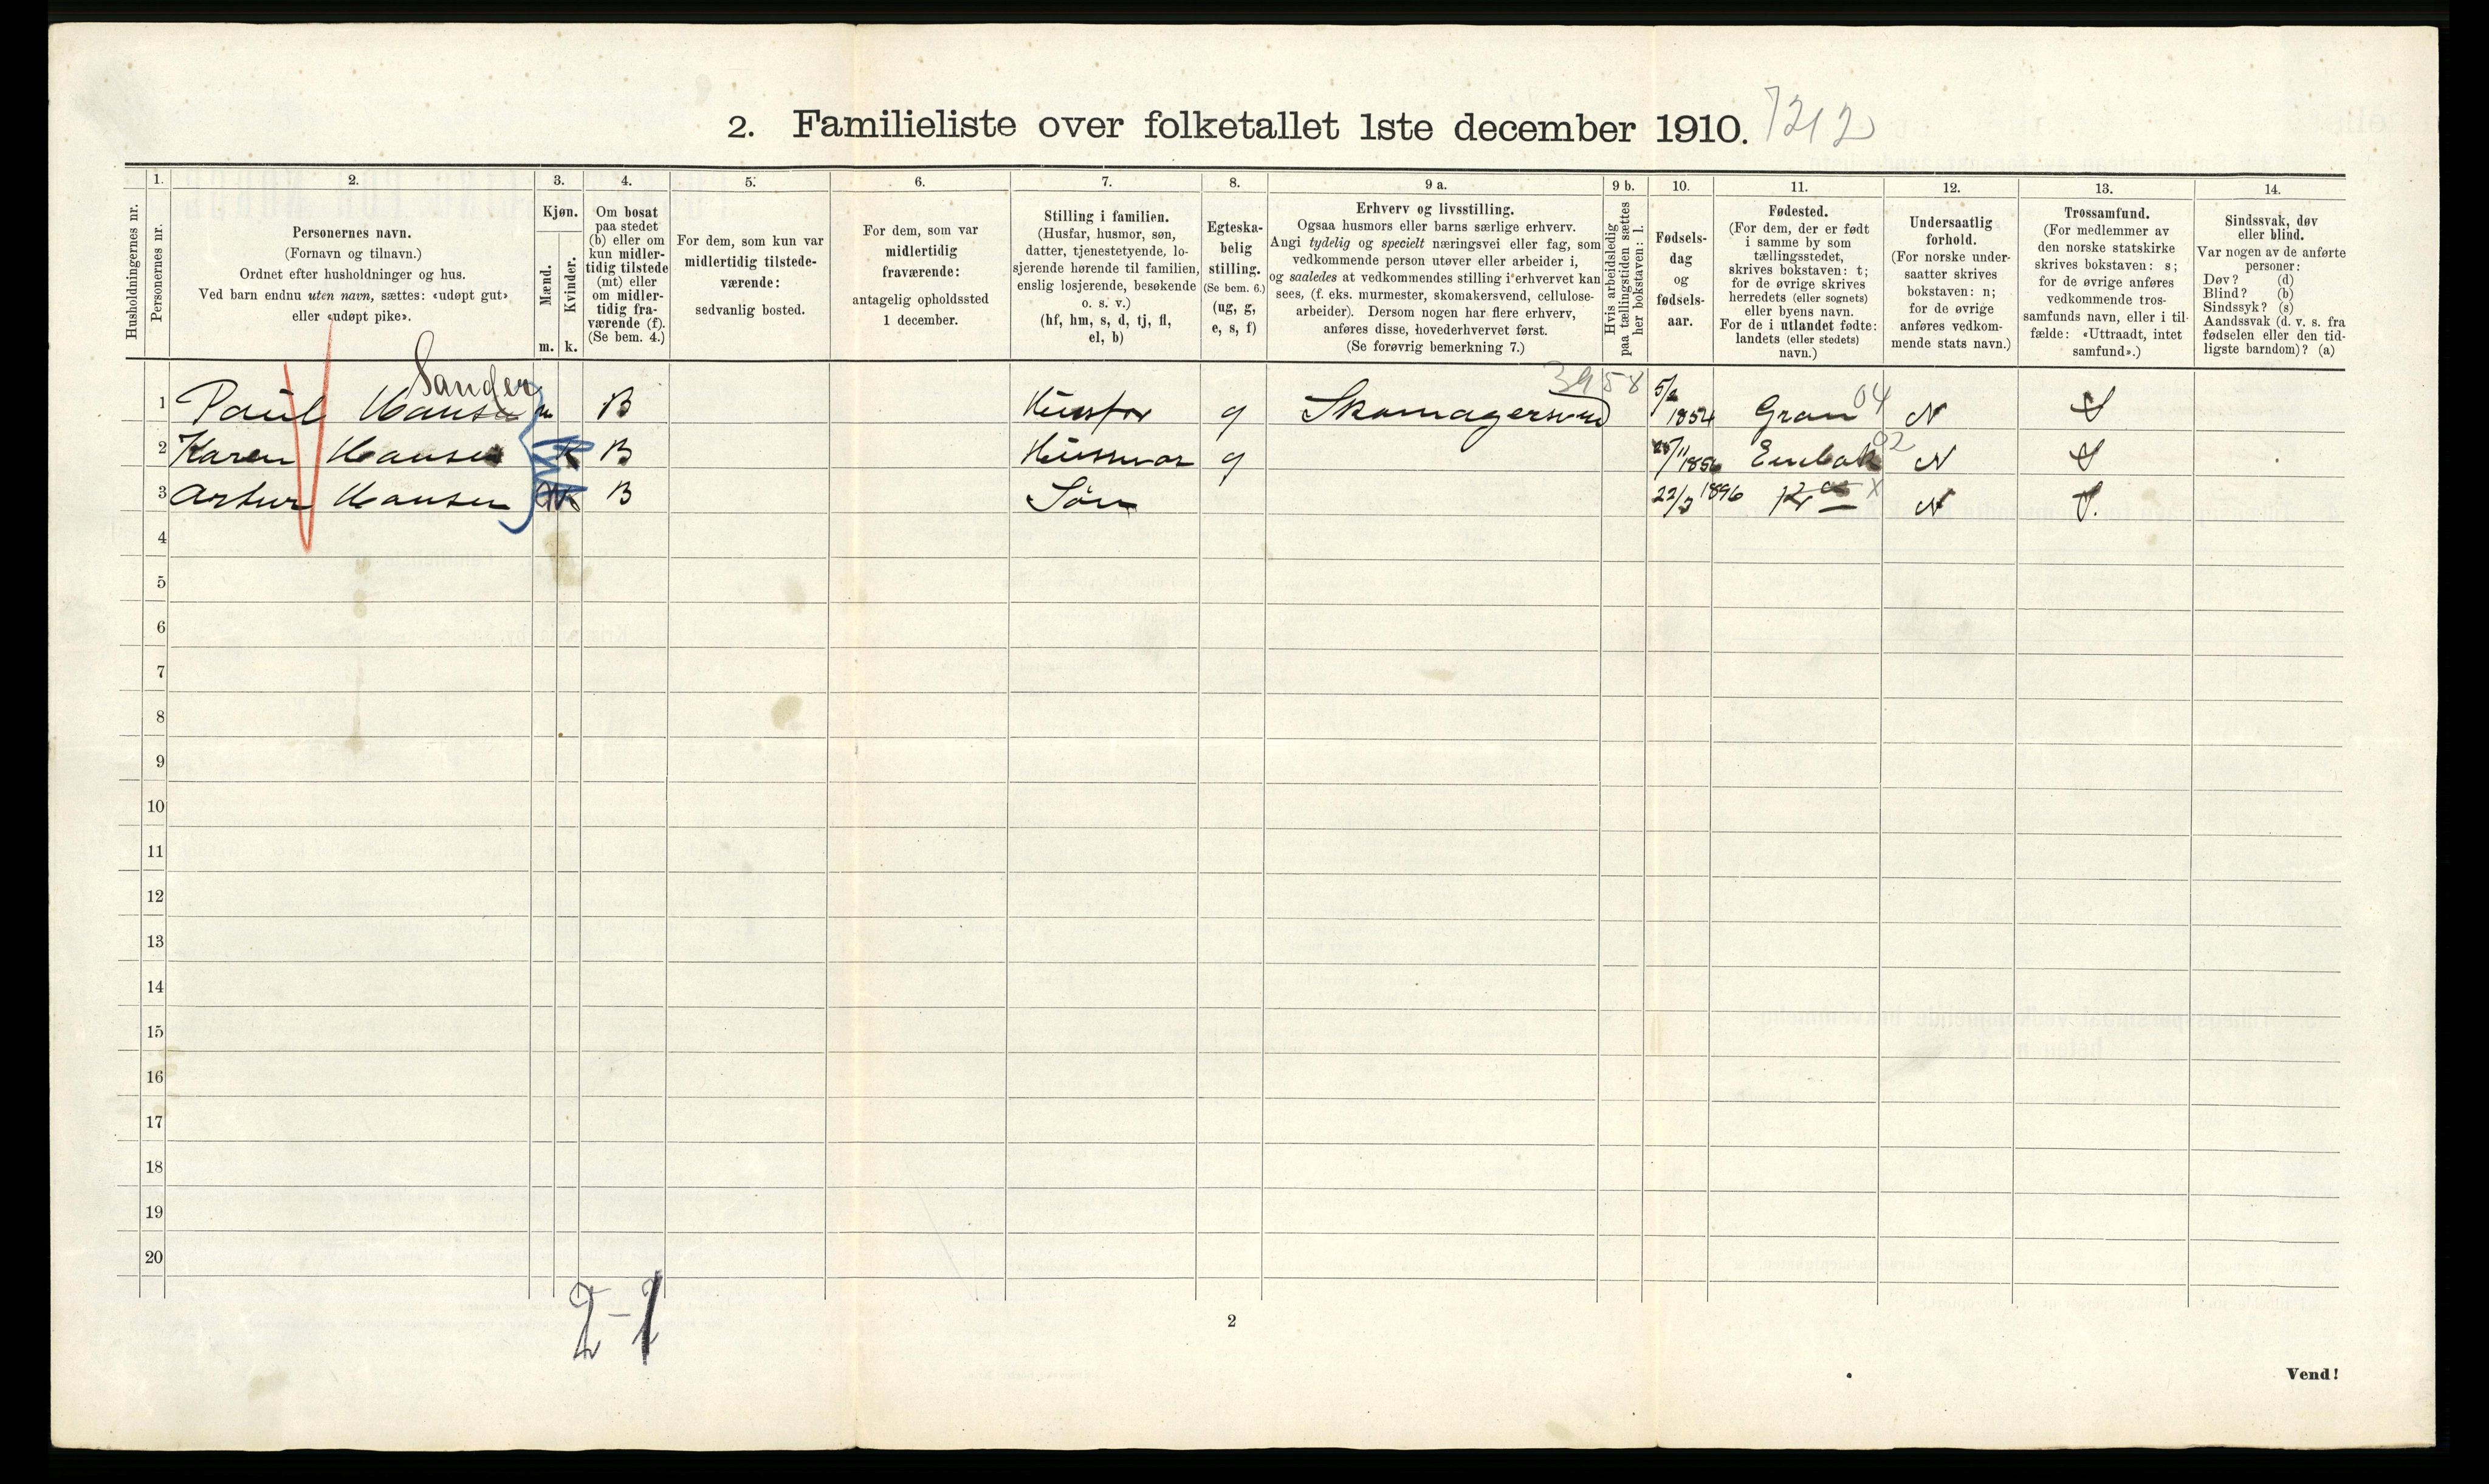 2. Familieliste over folketallet 1ste december 1910. 7212
Husholdningernes nr.
Personernes nr.
1.
2.
Personernes navn.
(Fornavn og tilnavn.)
Ordnet efter husholdninger og hus.
Ved barn endnu uten navn, sættes: «udøpt gut»
eller «udøpt pike».
3.
Kjøn.
Mænd.
Kvinder.
m. k.
4.
Om bosat
paa stedet
(b) eller om
kun midler-
tidig tilstede
(mt) eller
om midler-
tidig fra-
værende (f).
(Se bem. 4.)
5.
For dem, som kun var
midlertidig tilstede-
værende:
sedvanlig bosted.
6.
For dem, som var
midlertidig
fraværende:
antagelig opholdssted
1 december.
7.
Stilling i familien.
(Husfar, husmor, søn,
datter, tjenestetyende, lo-
sjerende hørende til familien,
enslig losjerende, besøkende
o. s. v.)
(hf, hm, s, d, tj, fl,
el, b)
8.
Egteska-
belig
stilling.
(Se bem. 6.)
(ug, g,
e, s, f)
9 a.
Erhverv og livsstilling.
Ogsaa husmors eller barns særlige erhverv.
Angi tydelig og specielt næringsvei eller fag, som
vedkommende person utøver eller arbeider i,
og saaledes at vedkommendes stilling i erhvervet kan
sees, (f. eks. murmester, skomakersvend, cellulose-
arbeider). Dersom nogen har flere erhverv,
anføres disse, hovederhvervet først.
(Se forøvrig bemerkning 7.)
9 b.
Hvis arbeidsledig
paa tællingstiden sættes
her bokstaven: l.
10.
Fødsels-
dag
og
fødsels-
aar.
11.
Fødested.
(For dem, der er født
i samme by som
tællingsstedet,
skrives bokstaven: t;
for de øvrige skrives
herredets (eller sognets)
eller byens navn.
For de i utlandet fødte:
landets (eller stedets)
navn.)
12.
Undersaatlig
forhold.
(For norske under-
saatter skrives
bokstaven: n;
for de øvrige
anføres vedkom-
mende stats navn.)
13.
Trossamfund.
(For medlemmer av
den norske statskirke
skrives bokstaven: s;
for de øvrige anføres
vedkommende tros-
samfunds navn, eller i til-
fælde: «Uttraadt, intet
samfund».)
14.
Sindssvak, døv
eller blind.
Var nogen av de anførte
personer:
Døv? (d)
Blind? (b)
Sindssyk? (s)
Aandssvak (d. v. s. fra
fødselen eller den tid-
ligste barndom)? (a)
Sander 3958
1 Paul Hansen m B Husfar g Skomagersvend 1854 Gran 04 N S
2 Karen Hansen K B Husmor g Enebak 02 N S
3 Artur Hansen B Søn 22/3 1896 Kr x N S.
4
5
6
7
8
9
10
11
12
13
14
15
16
17
18
19
20
2-1
2
Vend!